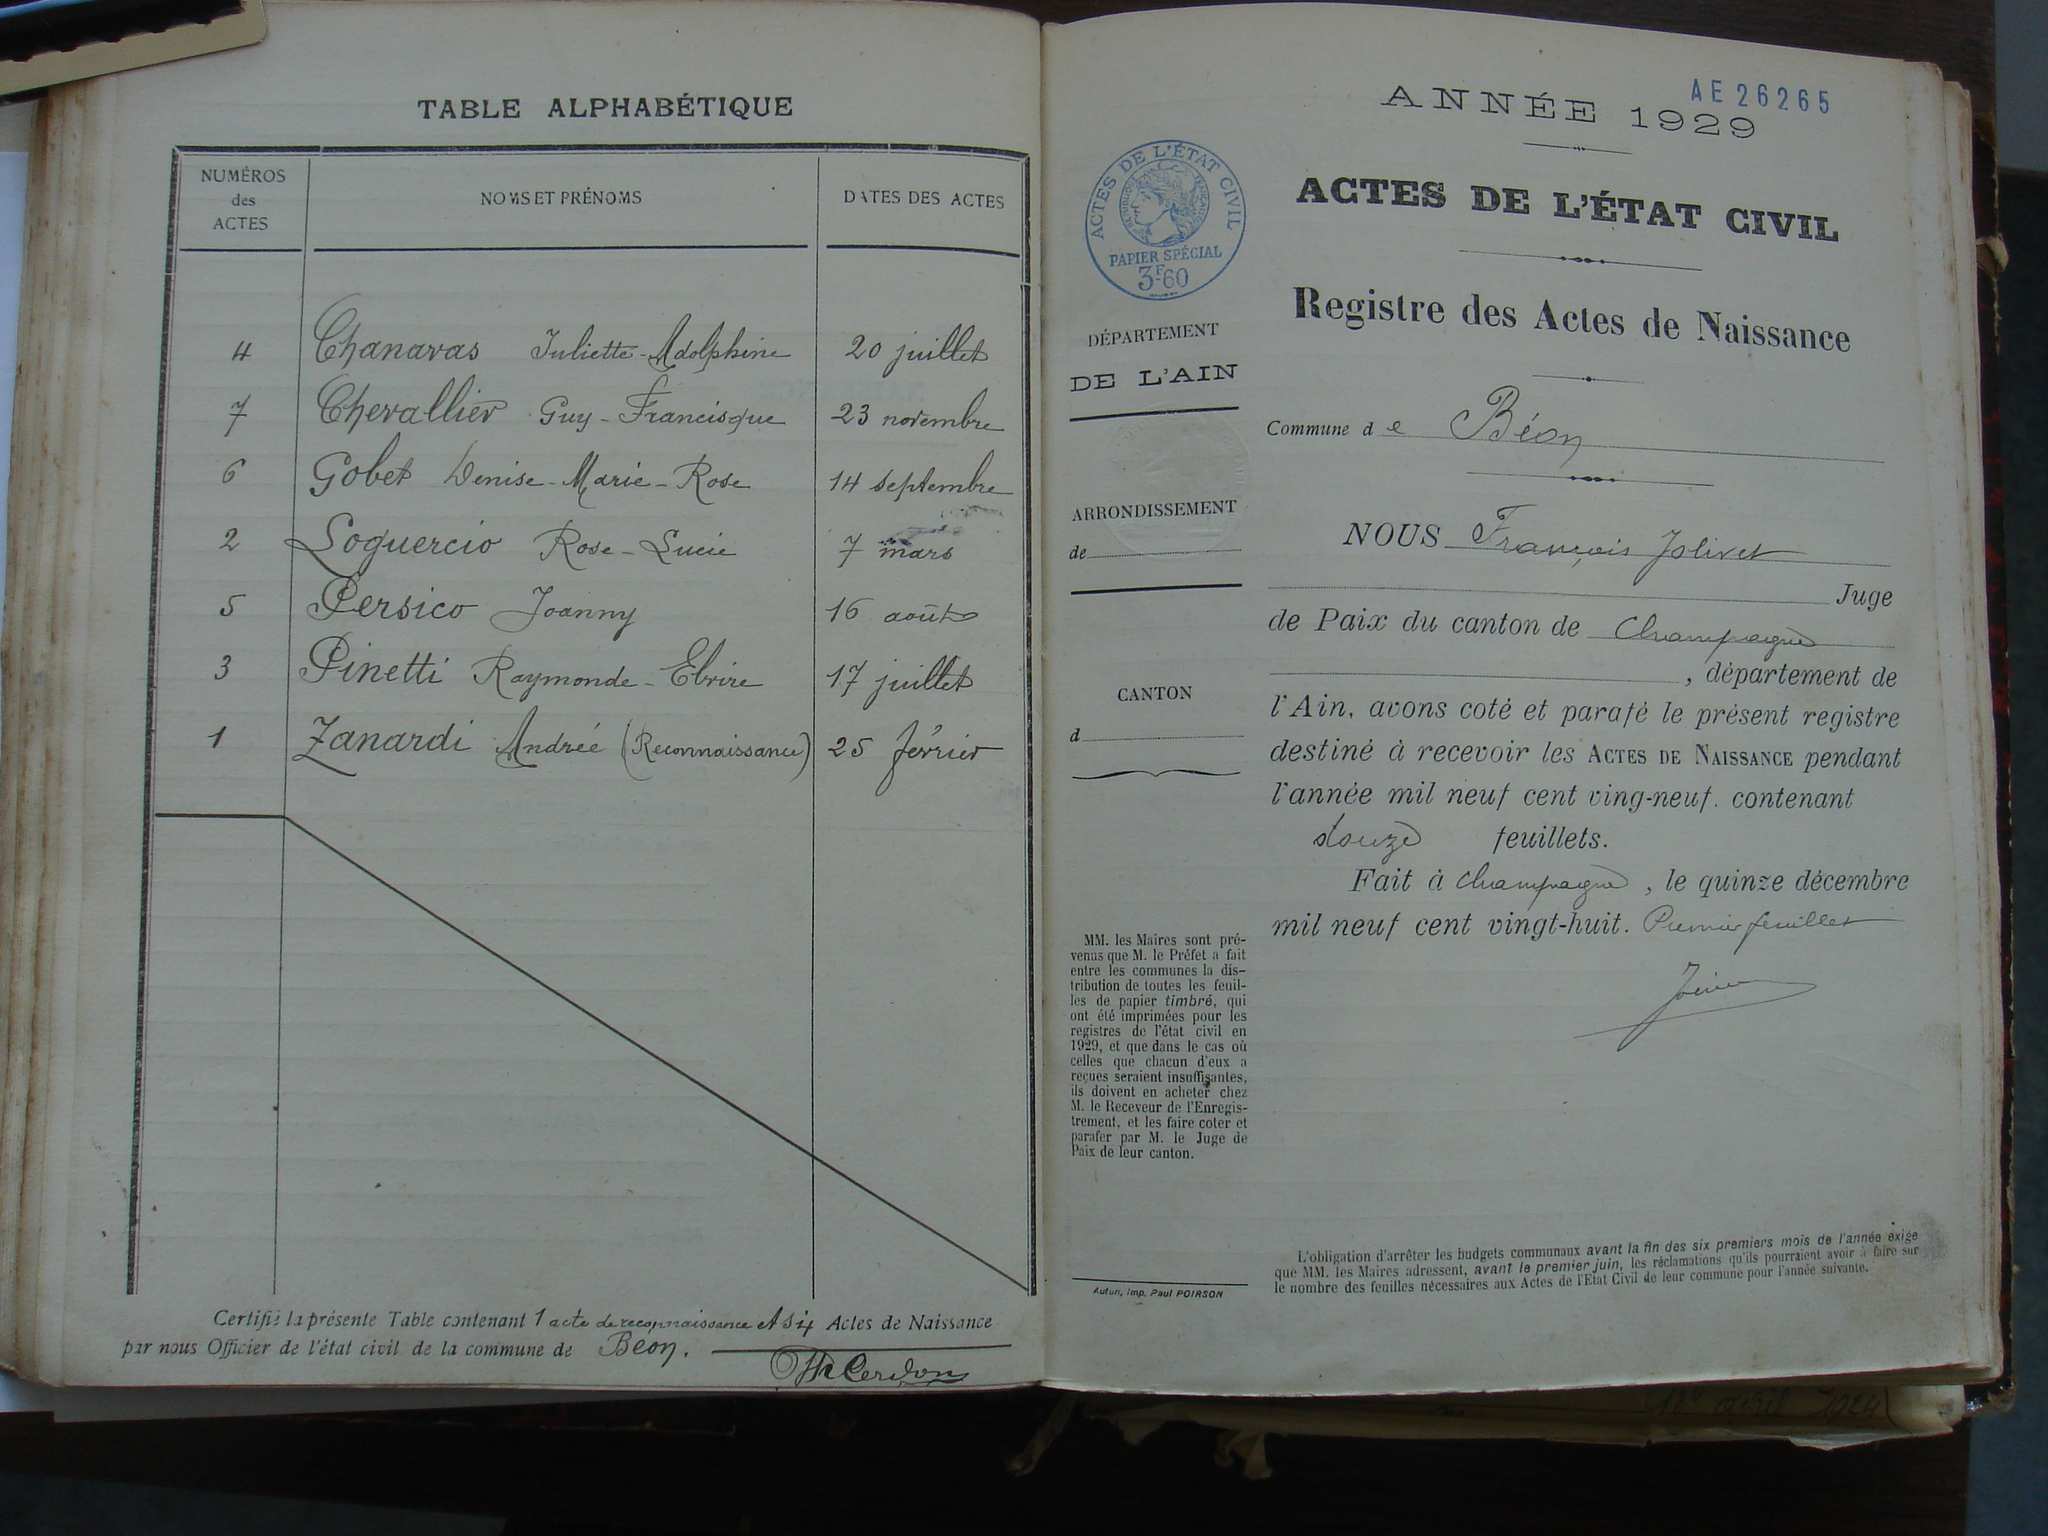 TABLE ALPHABÉTIQUE
NUMÉROS des ACTES
NOMS ET PRÉNOMS
DATES DES ACTES
4 Chanavas Juliette-Adolphine 20 juillet
7 Chevallier Guy-Francisque 23 novembre
6 Gobet Denise-Marie-Rose 14 septembre
2 Loguercio Rose-Lucie 7 mars
5 Persico Joanny 16 août
3 Pinetti Raymonde- 17 juillet
1 Zanardi Andrée (Reconnaissance) 25 février
Certifié la présente Table contenant 1 acte de reconnaissance et six Actes de Naissance
par nous Officier de l'état civil de la commune de Béon.
AE 26265
ANNÉE 1929
ACTES DE L'ÉTAT CIVIL
PAPIER SPÉCIAL
3F60
ACTES DE L'ÉTAT CIVIL
Registre des Actes de Naissance
DÉPARTEMENT
DE L'AIN
Commune de Béon
ARRONDISSEMENT
de
CANTON
d
NOUS François Jolivet
Juge
de Paix du canton de Champagne
, département de
l'Ain, avons coté et parafé le présent registre
destiné à recevoir les ACTES DE NAISSANCE pendant
l'année mil neuf cent ving-neuf. contenant
douze feuillets.
Fait à Champagne, le quinze décembre
mil neuf cent vingt-huit. Premier feuillet
MM. les Maires sont pré-
venus que M. le Préfet a fait
entre les communes la dis-
tribution de toutes les feuil-
les de papier timbré, qui
ont été imprimées pour les
registres de l'état civil en
1929, et que dans le cas où
celles que chacun d'eux a
reçues seraient insuffisantes,
ils doivent en acheter chez
M. le Receveur de l'Enregis-
trement, et les faire coter et
parafer par M. le Juge de
Paix de leur canton.
Autun, Imp. Paul POIRSON
L'obligation d'arrêter les budgets communaux avant la fin des six premiers mois de l'année exige
que MM. les Maires adressent, avant le premier juin, les réclamations qu'ils pourraient avoir à faire sur
le nombre des feuilles nécessaires aux Actes de l'Etat Civil de leur commune pour l'année suivante.